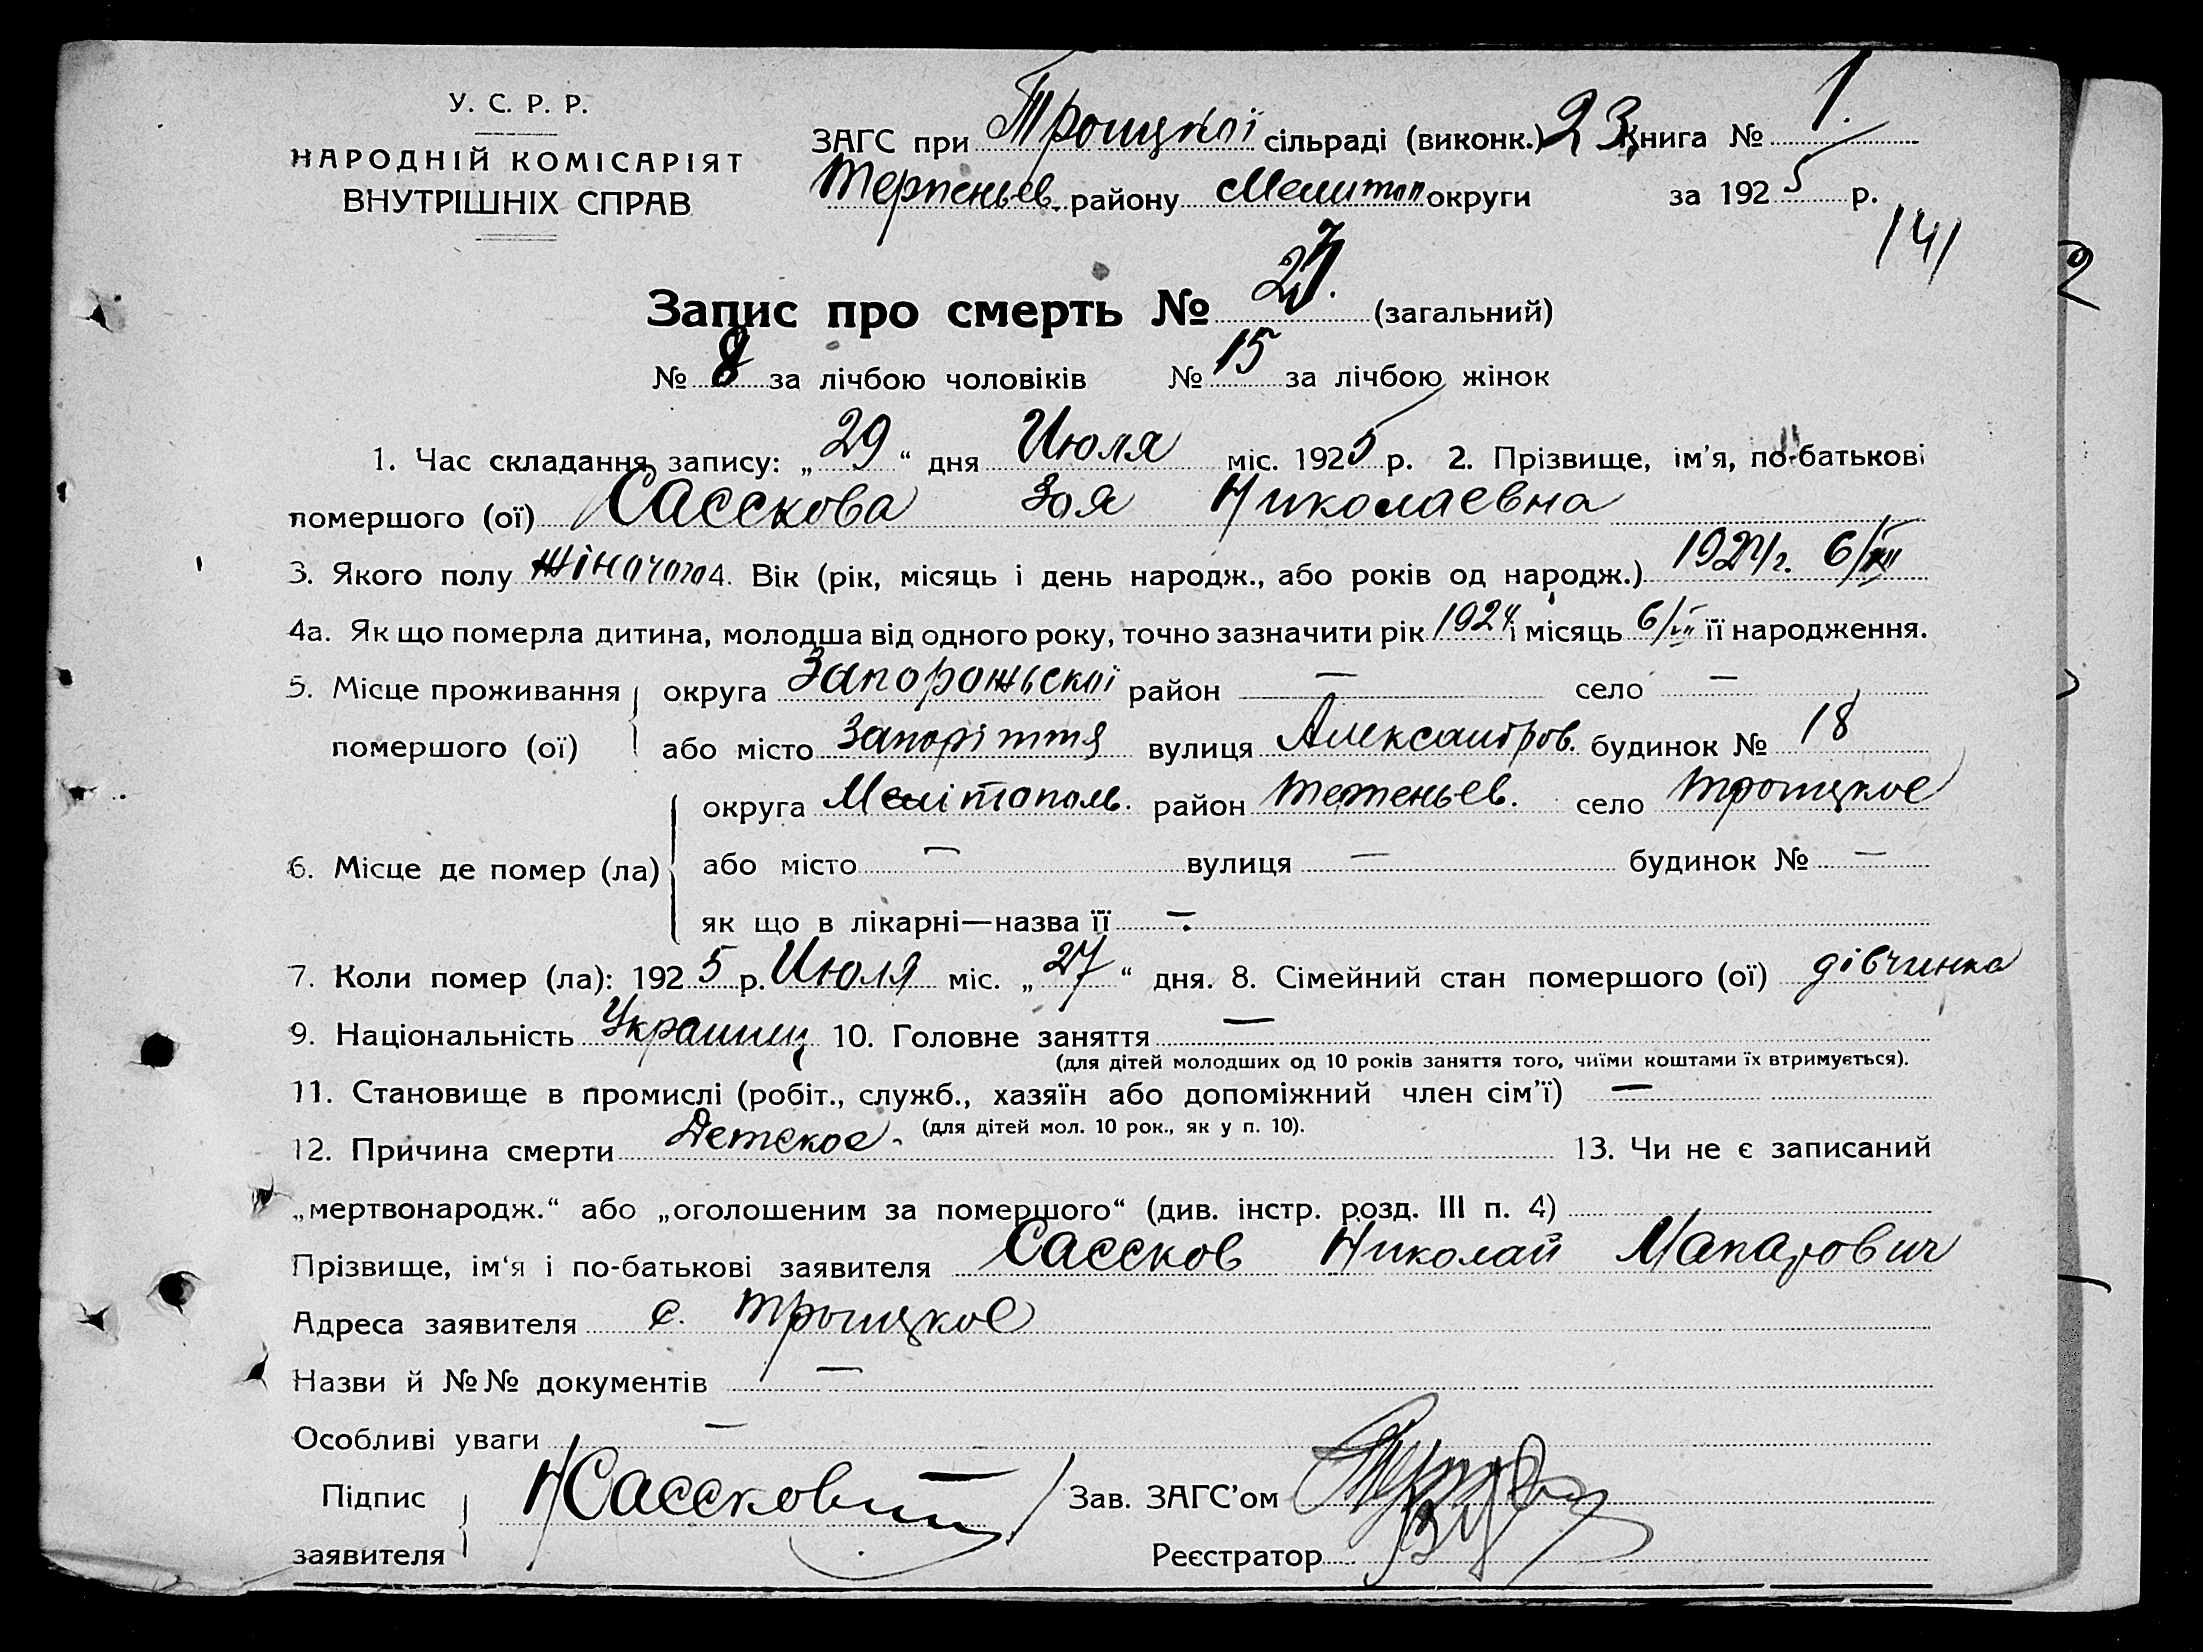 У. С. Р. Р.
НАРОДНІЙ КОМІСАРІЯТ
ВНУТРІШНІХ СПРАВ
ЗАГС при Троицкої сільраді (виконк.) 23 Книга № 1.
Терпеньев. району Мелитоп округи за 1925 р.
141
2
Запис про смерть № 23. (загальний)
№ 8 за лічбою чоловіків № 15 за лічбою жінок
1. Час складання запису: „29“ дня Июля міс. 1925 р. 2. Прізвище, ім'я, по-батькові
помершого (ої) Сасскова Зоя Николаевна
3. Якого полу Жіночого 4. Вік (рік, місяць і день народж., або років од народж.) 1924 г. 6/
4а. Як що померла дитина, молодша від одного року, точно зазначити рік 1924 і місяць 6/ її народження.
5. Місце проживання округа Запорожьскої район — село —
помершого (ої) або місто Запоріття вулиця Александров. будинок № 18
округа Мелітополь. район Терпеньев. село Троицкое
6. Місце де помер (ла) або місто — вулиця — будинок № —
як що в лікарні—назва її —.
7. Коли помер (ла): 1925 р. Июля міс. „27“ дня. 8. Сімейний стан помершого (ої) дівчинка
9. Національність Украинец 10. Головне заняття —
(для дітей молодших од 10 років заняття того, чиїми коштами їх втримується).
11. Становище в промислі (робіт., служб., хазяїн або допоміжний член сім'ї) —
(для дітей мол. 10 рок., як у п. 10).
12. Причина смерти Детское. 13. Чи не є записаний
„мертвонародж.“ або „оголошеним за помершого“ (див. інстр. розд. III п. 4)
Прізвище, ім'я і по-батькові заявителя Сассков Николай Макарович
Адреса заявителя с. Троицкое
Назви й №№ документів —
Особливі уваги —
Підпис заявителя Н Сассков Зав. ЗАГС'ом
Реєстратор